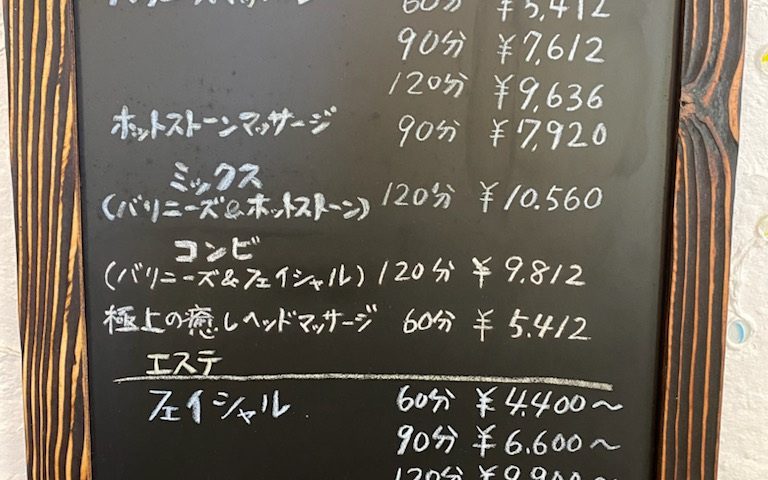 バリニーズマッサージ 60分 ¥5,412
90分 ¥7,612
120分 ¥9,636
ホットストーンマッサージ 90分 ¥7,920
ミックス
(バリニーズ&ホットストーン) 120分 ¥10.560
コンビ
(バリニーズ&フェイシャル) 120分 ¥9.812
極上の癒しヘッドマッサージ 60分 ¥5.412
エステ
フェイシャル 60分 ¥4.400〜
90分 ¥6.600〜
120分 ¥9.900〜